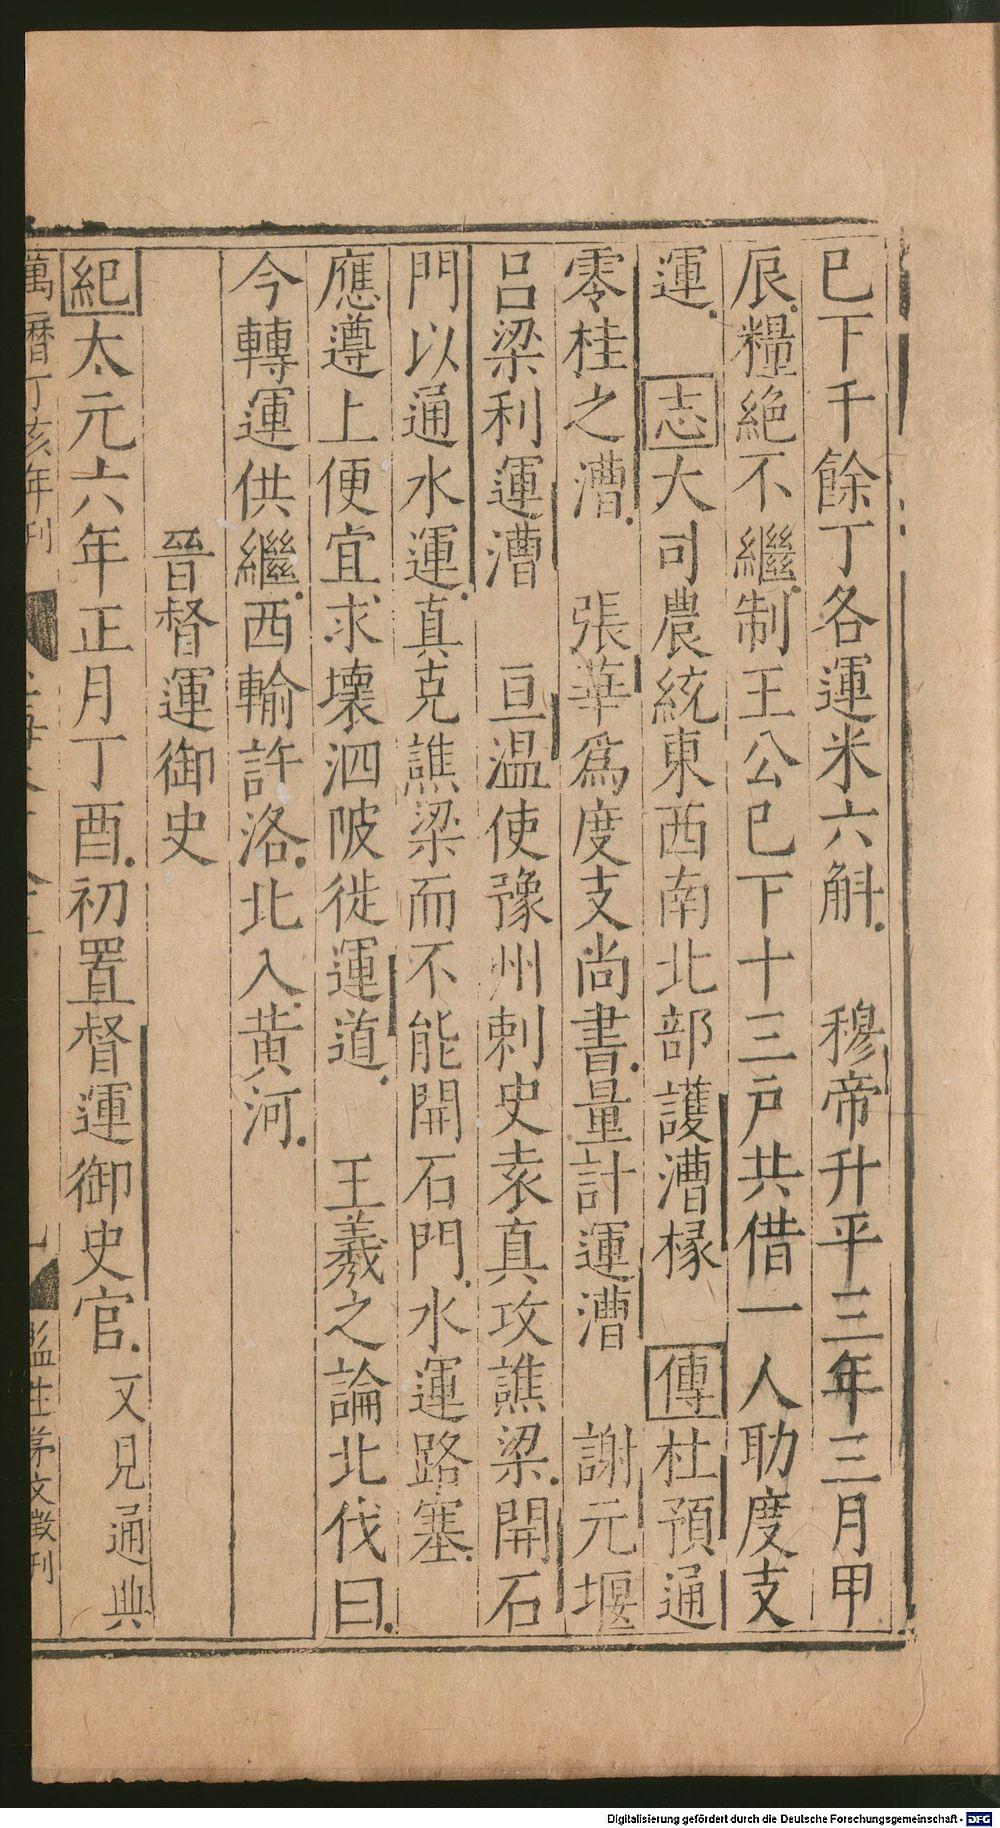 已下千餘丁各運米六斛　穆帝升平三年三月甲
辰糧絶不繼制王公已下十三戸共借一人助度支
運　志大司農統東西南北部護漕掾　傳杜預通
零桂之漕　張華爲度支尚書量計運漕　謝元堰
呂梁利運漕　亘温使豫州刺史袁真攻譙梁開石
門以通水運真克譙梁而不能開石門水運路塞
應遵上便宜求壞泗陂徙運道　王羲之論北伐曰
今轉運供繼西輸許洛北入黄河
晉督運御史
紀太元六年正月丁酉初置督運御史官又見通典
萬曆丁亥年刊
監生茅文徵刊
Digitalisierung gefördert durch die Deutsche Forschungsgemeinschaft - DFG